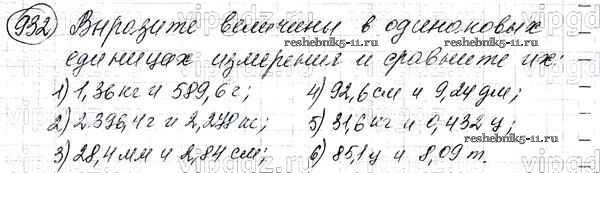 932) Выразите величины в одинаковых
единицах измерения и сравните их:
1) 1,36 кг и 589,6 г; 4) 92,6 см и 9,24 дм;
2) 2396,4 г и 2,278 кг; 5) 31,6 кг и 0,432 ц;
3) 28,4 мм и 2,84 см; 6) 85,1 ц и 8,09 т.
reshebnik5-11.ru
reshebnik5-11.ru